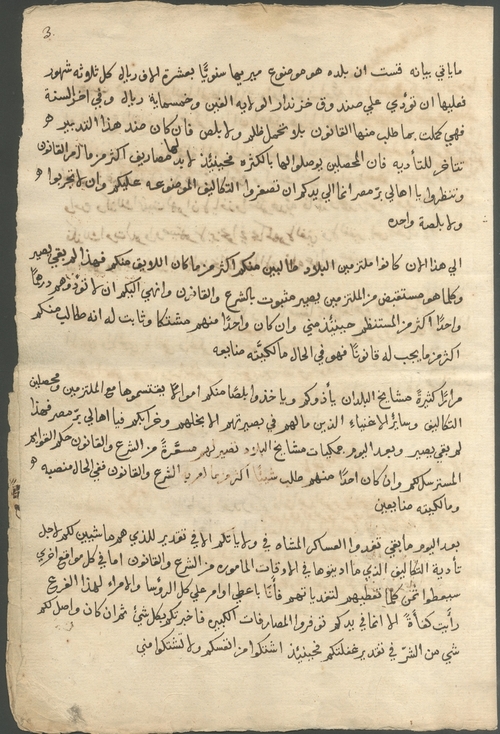 3
ماياتي بيانه قست ان بلده هو موضوع ميريها سنويًا بعشرة الاف ريال كل ثلوثه شهور
فعليها ان تؤدي علي صندوق خزندار الولايه الفين وخمسماية ريال وفي اخر السنة
فهي كملت بما طلب منها القانون بلا تحمل ظلم ولا بلص فان كان ضد هذا التدبير هو
تتاخر للتأديه فان المحصلين يوصلوا لها بالكثره فحينئذ لابد لها مصاريف اكثر من ما امر القانون
وتنتظروا يا اهالي بر مصر انما الي يدكم ان تصغروا التكاليف الموضوعه عليكم وان لا تجربوا هو
ولا بلصة واحده
الي هذا الان كانوا ملتزمين البلاد طالبين منكم اكثر من ما كان اللايق منكم فهذا لم بقي يصير
وكلما هو مستقبض من الملتزمين يصير مثبوت بالشرع والقانون وانهي اليكم ان لا تؤدوهم درهمًا
واحدًا اكثر من المستنظم حينئذ مني وان كان واحدًا منهم مشتكا وثابت له انه طالب منكم
اكثر من ما يجب له قانونًا فهو في الحال مالكيته ضايعه
مرارًا كثيرةً مشايخ البلدان ياذوكم وياخذوا بلصًا منكم اموالًا يقتسموها مع الملتزمين ومحصلين
التكاليف وسائر الاغنياء الذين مالهم في بصيرتهم الا بخلهم وخرابكم فيا اهالي بر مصر فهذا
لم بقي يصير وبعد اليوم جمكيات مشايخ البلاد تصير لهم مسعّرةً من الشرع والقانون حكم القوائم
المسترسل لكم وان كان احدًا منهم طلب شيئًا اكثر من ما امر به الشرع والقانون ففي الحال منصبه هو
ومالكيته ضايعين
بعد اليوم ما بقي تغدوا العساكر المشاه في ولاياتكم الا في تقدير للذي هم ماشيين لكم لاجل
تأدية التكاليف الذي ما اديتوها في الاوقات الماموره من الشرع والقانون اما في كل مواضع اخري
سيعطوا ثمن كلما تعطيهم لتغدياتهم فأنّا باعطي اوامر علي كل الرؤسا والامراء لهذا الفرع
رأيت كفأةً الا انما في يدكم توفروا المصارفات الكبير فاخبرتكم بكل شئ ثم ان كان واصل لكم
شي من الشرّ في تقدير غفلتكم فحينئذ اشتكوا من انفسكم ولا تشتكوا مني